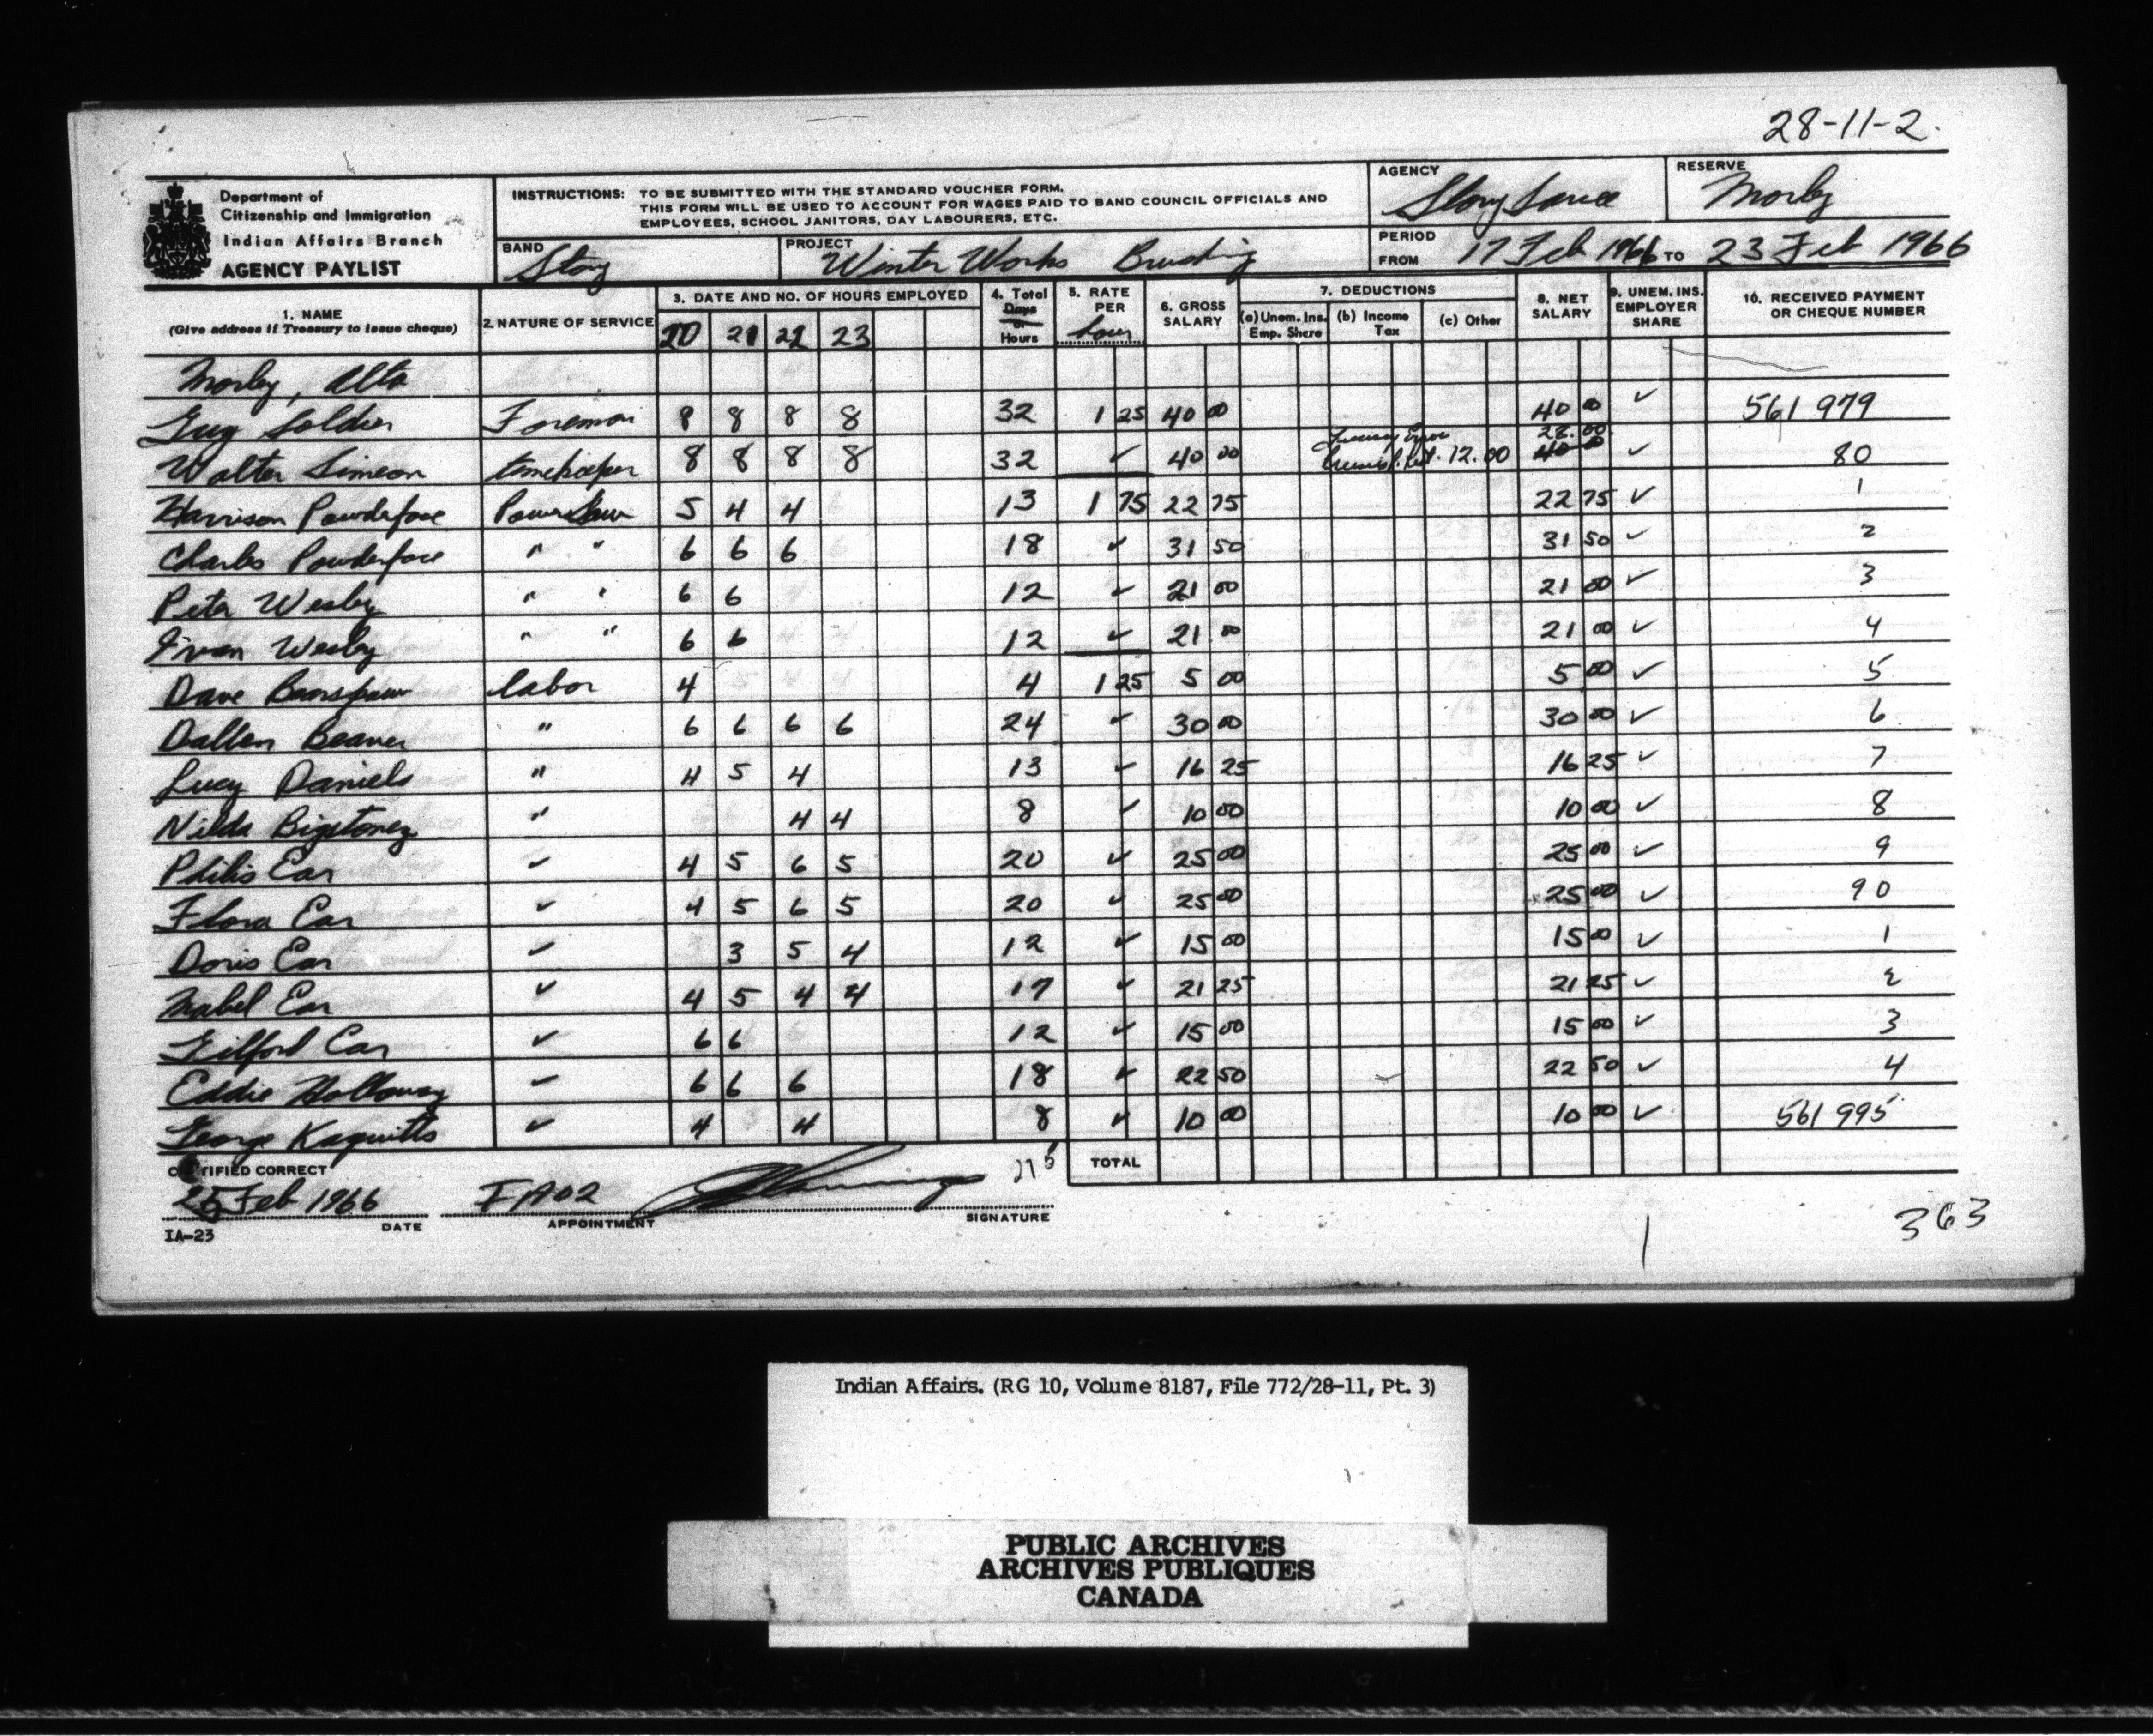 28-11-2.
Department of
Citizenship and Immigration
Indian Affairs Branch
AGENCY PAYLIST
INSTRUCTIONS: TO BE SUBMITTED WITH THE STANDARD VOUCHER FORM.
THIS FORM WILL BE USED TO ACCOUNT FOR WAGES PAID TO BAND COUNCIL OFFICIALS AND
EMPLOYEES, SCHOOL JANITORS, DAY LABOURERS, ETC.
AGENCY Stony Sarcee
RESERVE Morley
BAND Stony
PROJECT Winter Works Brushing
PERIOD FROM 17 Feb 1966 TO 23 Feb 1966
1. NAME (Give address if Treasury to issue cheque) 2. NATURE OF SERVICE 3. DATE AND NO. OF HOURS EMPLOYED 4. Total Days or Hours 5. RATE PER hour 6. GROSS SALARY 7. DEDUCTIONS (a) Unem. Ins. Emp. Share (b) Income Tax (c) Other 8. NET SALARY 9. UNEM. INS. EMPLOYER SHARE 10. RECEIVED PAYMENT OR CHEQUE NUMBER
20 21 22 23
Morley, Alta
Guy Soldier Foreman 8 8 8 8 32 1 25 40 00 40 00 ✓ 561 979
Walter Simeon timekeeper 8 8 8 8 32 ✓ 40 00 12.00 28.00 40 00 ✓ 80
Harrison Powderface Power Saw 5 4 4 13 1 75 22 75 22 75 ✓ 1
Charles Powderface " " 6 6 6 18 ✓ 31 50 31 50 ✓ 2
Peter Wesley " " 6 6 12 ✓ 21 00 21 00 ✓ 3
Ivan Wesley " " 6 6 12 ✓ 21.00 21 00 ✓ 4
Dave Bearspaw labor 4 4 1 25 5 00 5 00 ✓ 5
Dallen Beaver " 6 6 6 6 24 ✓ 30 00 30 00 ✓ 6
Lucy Daniels " 4 5 4 13 ✓ 16 25 16 25 ✓ 7
Nilda Bigstoney " 4 4 8 ✓ 10 00 10 00 ✓ 8
Philis Ear ✓ 4 5 6 5 20 ✓ 25 00 25 00 ✓ 9
Flora Ear ✓ 4 5 6 5 20 ✓ 25 00 25 00 ✓ 90
Doris Ear ✓ 3 5 4 12 ✓ 15 00 15 00 ✓ 1
Mabel Ear ✓ 4 5 4 4 17 ✓ 21 25 21 25 ✓ 2
Gilford Ear ✓ 6 6 12 ✓ 15 00 15 00 ✓ 3
Eddie Holloway ✓ 6 6 6 18 ✓ 22 50 22 50 ✓ 4
George Kaquitts ✓ 4 4 8 ✓ 10 00 10 00 ✓ 561 995
CERTIFIED CORRECT
275
TOTAL
25 Feb 1966 IA02
DATE APPOINTMENT SIGNATURE
IA-23
363
Indian Affairs. (RG 10, Volume 8187, File 772/28-11, Pt. 3)
PUBLIC ARCHIVES
ARCHIVES PUBLIQUES
CANADA